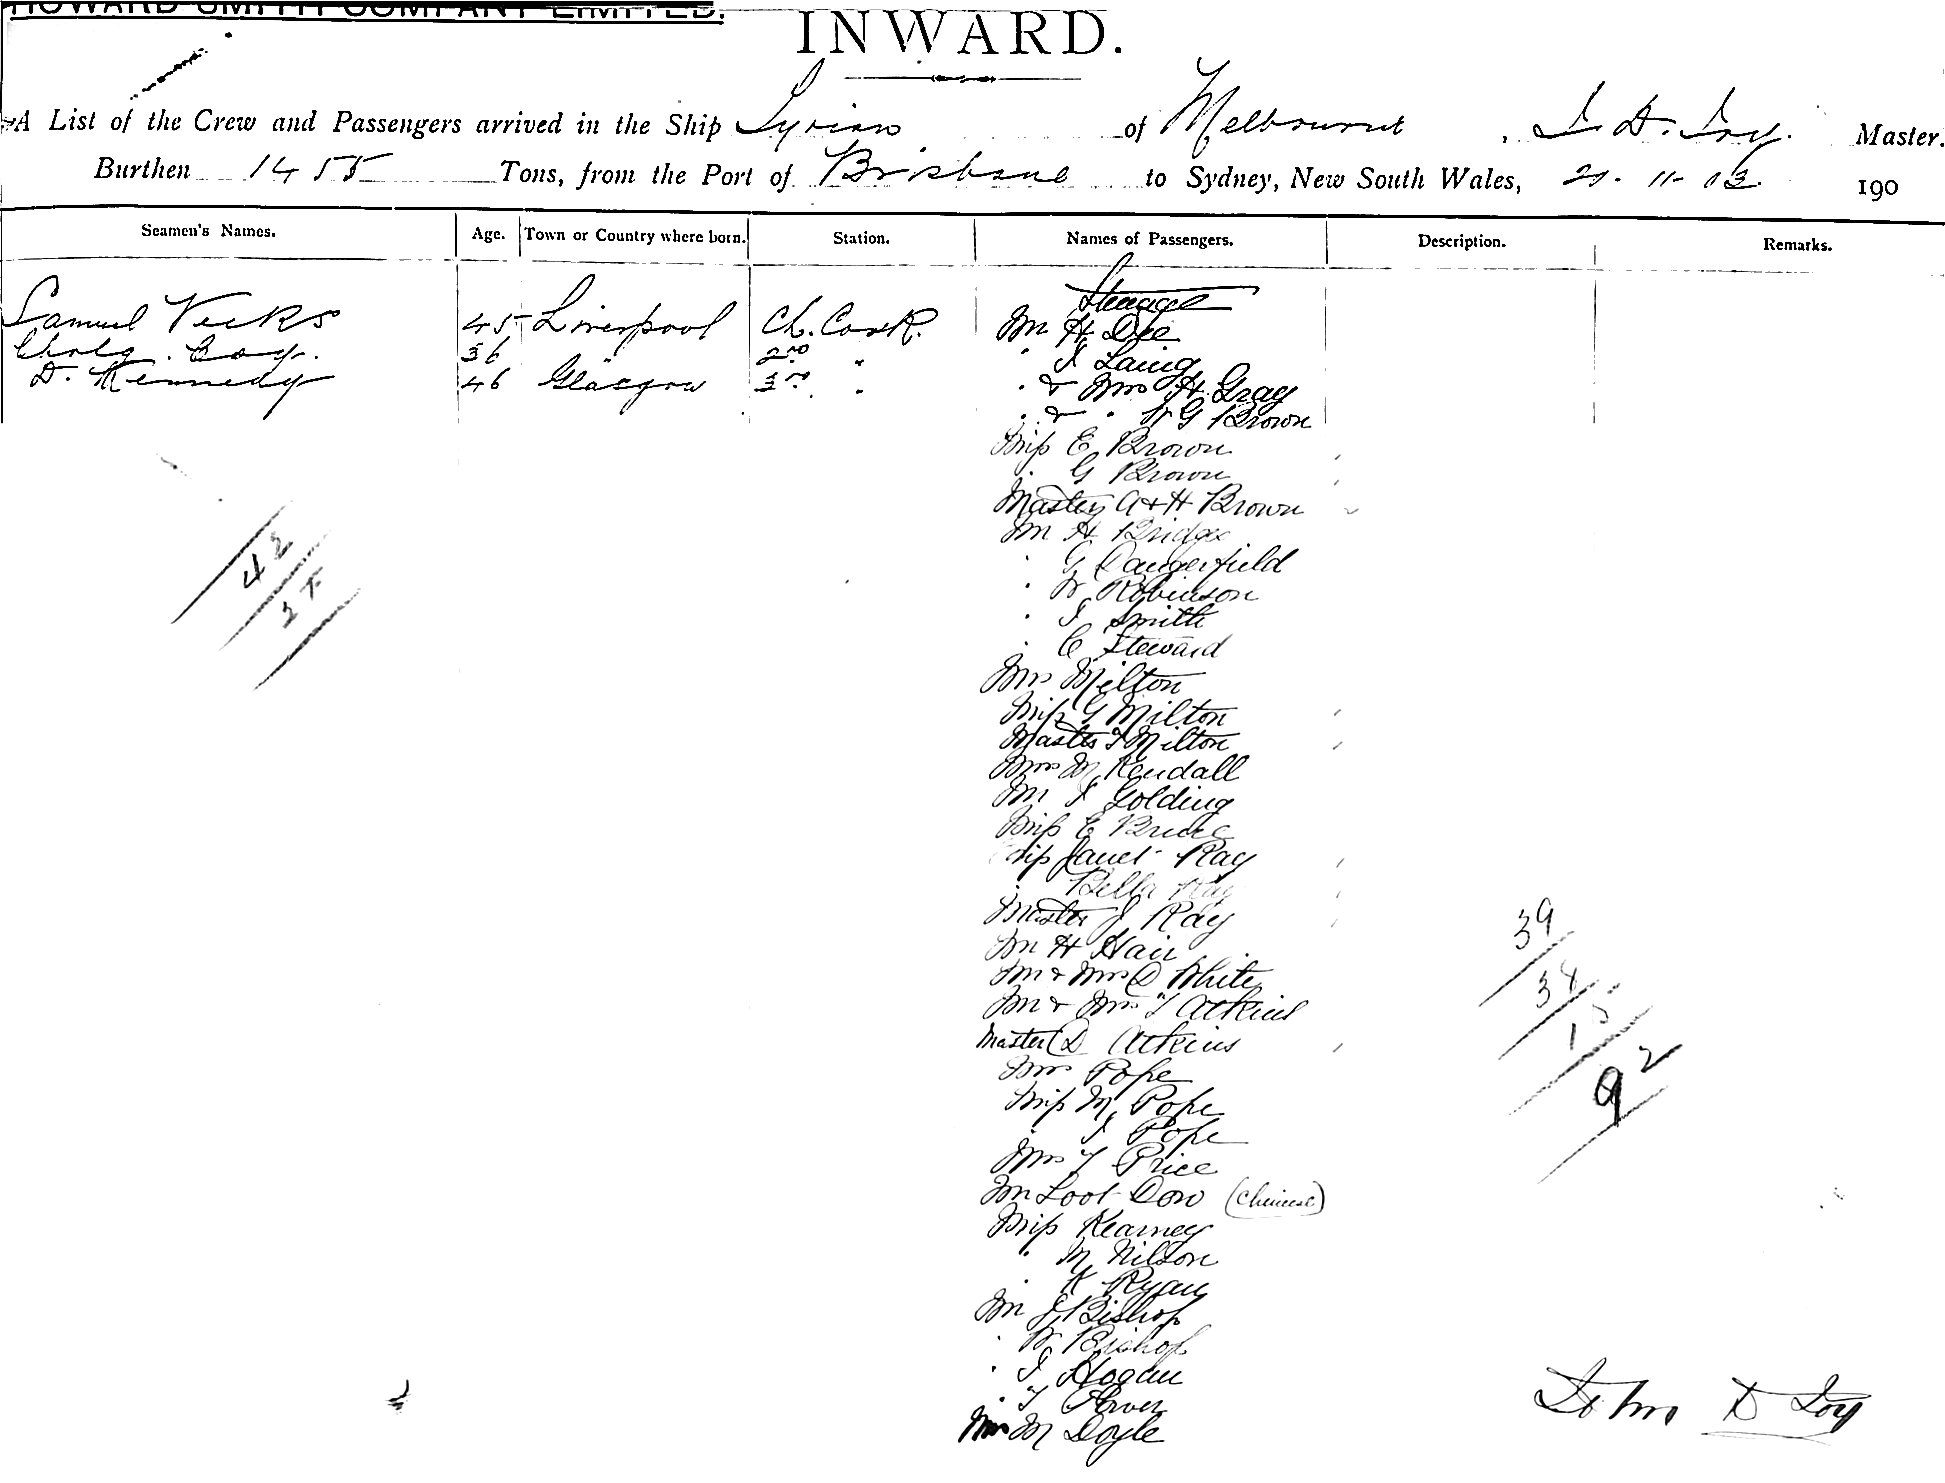 HOWARD SMITH COMPANY LIMITED.
INWARD.
A List of the Crew and Passengers arrived in the Ship Syrian of Melbourne, J. D. Joy. Master.
Burthen 1455 Tons, from the Port of Brisbane to Sydney, New South Wales, 21. 11. 03. 190
Seamen's Names. Age. Town or Country where born. Station. Names of Passengers. Description. Remarks.
Steerage
Samuel Vicks 45 Liverpool Ch. Cook. Mr H Dee
36 2nd " " J Laing
D. Kennedy 46 Glasgow 3rd " " & Mrs H Gray
" & " W G Brown
Miss E Brown
" G Brown
Masters A & H Brown
Mr H Bridge
" G Dangerfield
" W Robinson
" J Smith
" C Steward
Mrs Milton
Miss G Milton
Master J Milton
Mrs M Kendall
Mr J Golding
Miss E Bruce
Miss Janet Ray
" Bella Ray
Master J Ray
Mr H Hair
Mr & Mrs D White
Mr & Mrs T Atkins
Master D Atkins
Mrs Pope
Miss M Pope
" J Pope
Mrs T Price
Mr Loot Dow (Chinese)
Miss Kearney
" M Nilson
" K Ryan
Mr J Bishop
" W Bishop
" J Hogan
" T
Mrs M Doyle
42
39
38
15
92
John D Joy